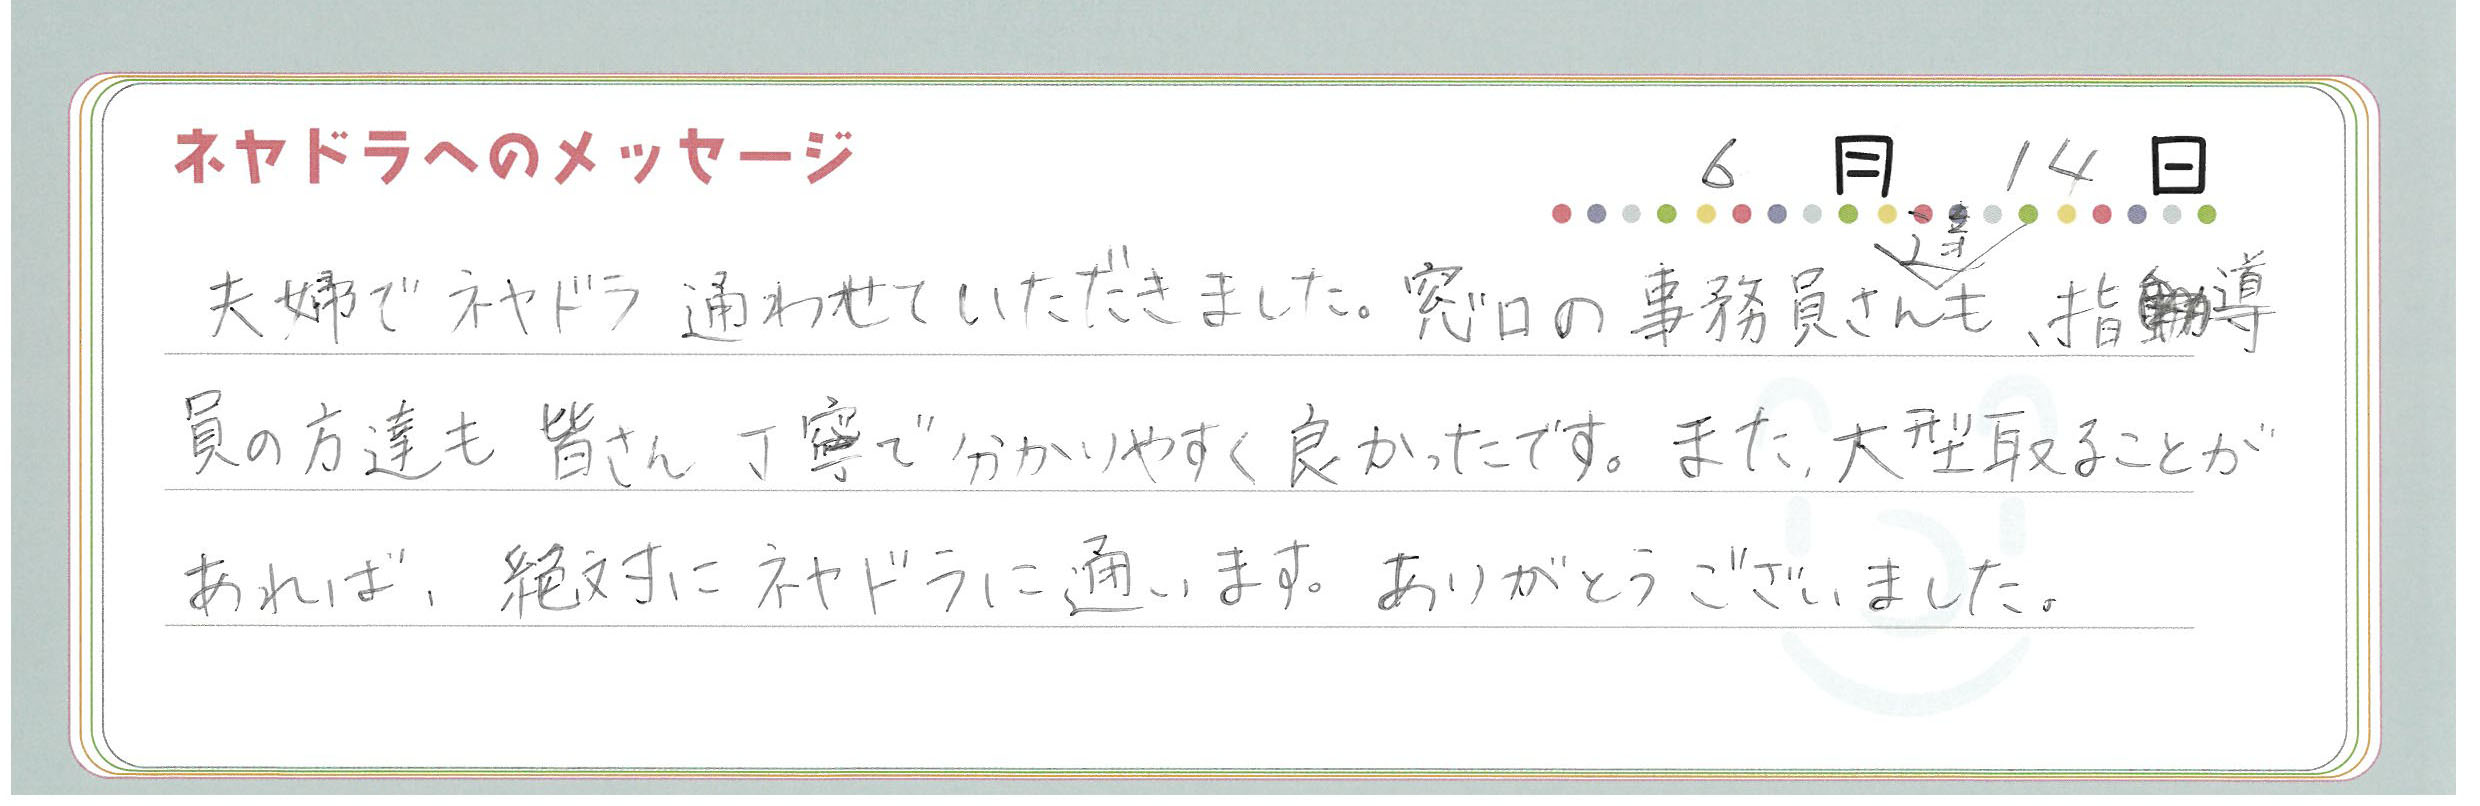 ネヤドラへのメッセージ
6月14日
夫婦でネヤドラ通わせていただきました。窓口の事務員さん達も、指導
員の方達も皆さん丁寧で分かりやすく良かったです。また、大型取ることが
あれば、絶対にネヤドラに通います。ありがとうございました。